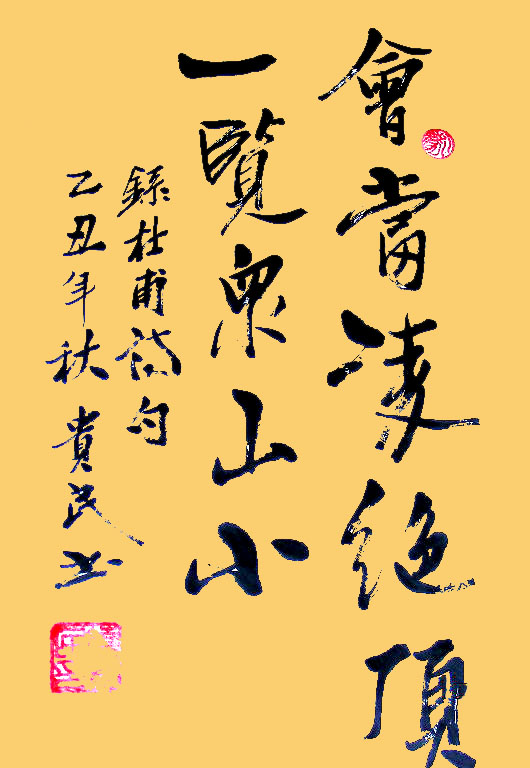 會當凌絕頂
一覽衆山小
錄杜甫詩句
乙丑年秋 貴民书